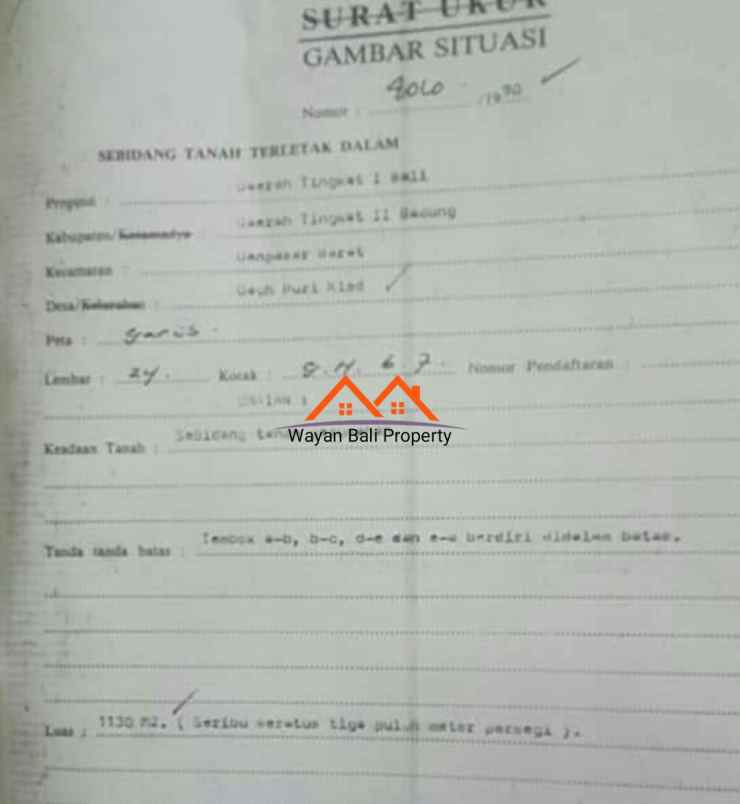 SURAT UKUR
GAMBAR SITUASI
Nomor : /19 90
SEBIDANG TANAH TERLETAK DALAM
Propinsi : Daerah Tingkat I Bali
Kabupaten/Kotamadya : Daerah Tingkat II Badung
Kecamatan : Denpasar Barat
Desa/Kelurahan : Dauh Puri Klod
Peta : garis
Lembar : 24. Kotak : 8. H. 6 7. Nomor Pendaftaran :
Keadaan Tanah : Sebidang tanah
Wayan Bali Property
Tanda tanda batas : Tembok a-b, b-c, d-e dan e-a berdiri didalam batas.
Luas : 1130 M2. ( Seribu seratus tiga puluh meter persegi ).